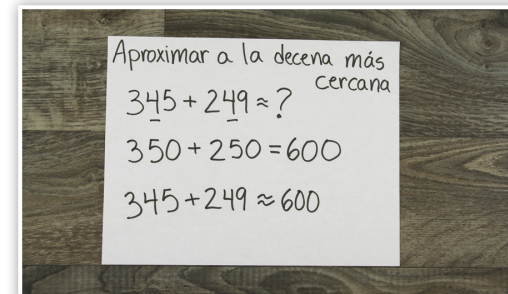 Aproximar a la decena más
cercana
345 + 249 ≈ ?
350 + 250 = 600
345 + 249 ≈ 600